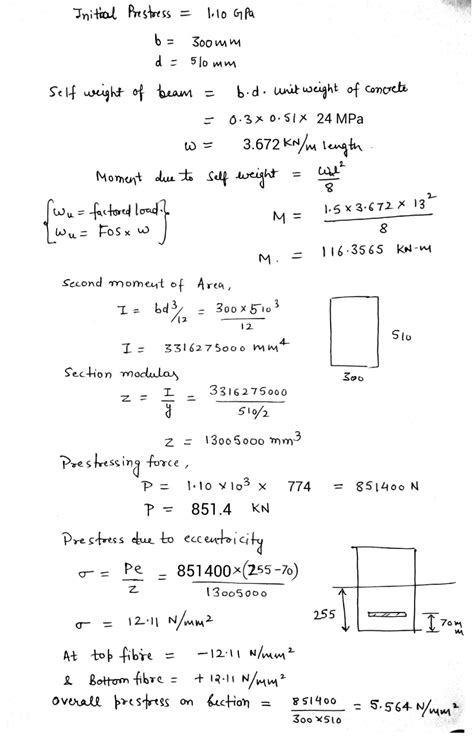 Initial Prestress = 1.10 GPa
b = 300mm
d = 510 mm
Self weight of beam = b.d. unit weight of concrete
= 0.3 × 0.51 × 24 MPa
w = 3.672 KN/m length.
Moment due to self weight = wul²/8
{ wu = factored load.
wu = FOS × w }
M = 1.5 × 3.672 × 13² / 8
M. = 116.3565 KN-m
Second moment of Area,
I = bd³/12 = 300 × 510³ / 12
I = 3316275000 mm⁴
510
300
Section modulas
z = I/y = 3316275000 / 510/2
z = 13005000 mm³
Prestressing force,
P = 1.10 × 10³ × 774 = 851400 N
P = 851.4 KN
Prestress due to eccentricity
σ = Pe/z = 851400×(255-70) / 13005000
255
70mm
σ = 12.11 N/mm²
At top fibre = -12.11 N/mm²
& Bottom fibre = + 12.11 N/mm²
Overall prestress on Section = 851400 / 300 × 510 = 5.564 N/mm²